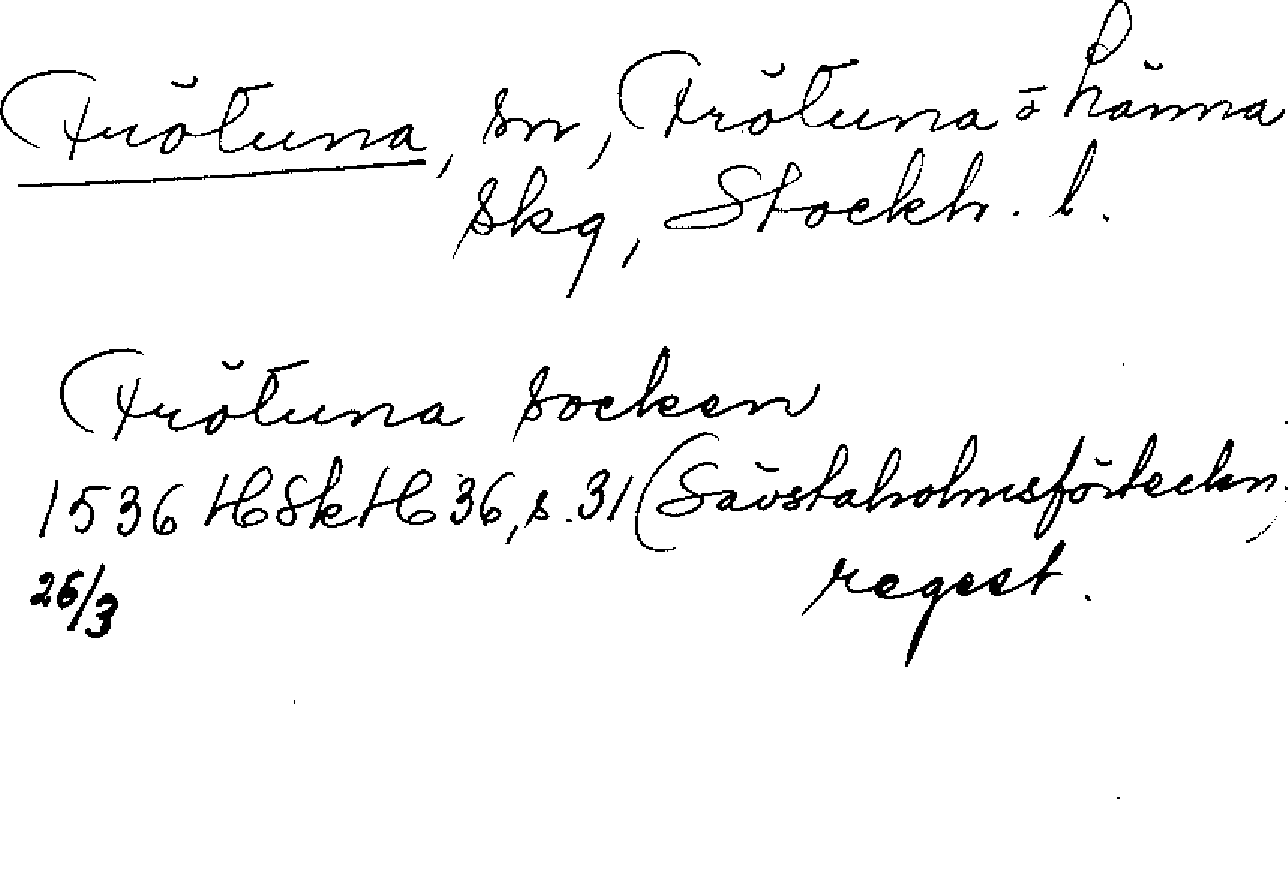 Frötuna, sn, Frötuna o Länna
skg, Stockh. l.
Frötuna socken
1536 HSkH 36, s. 31 (Sävstaholmsförteckn.)
26/3 regest.